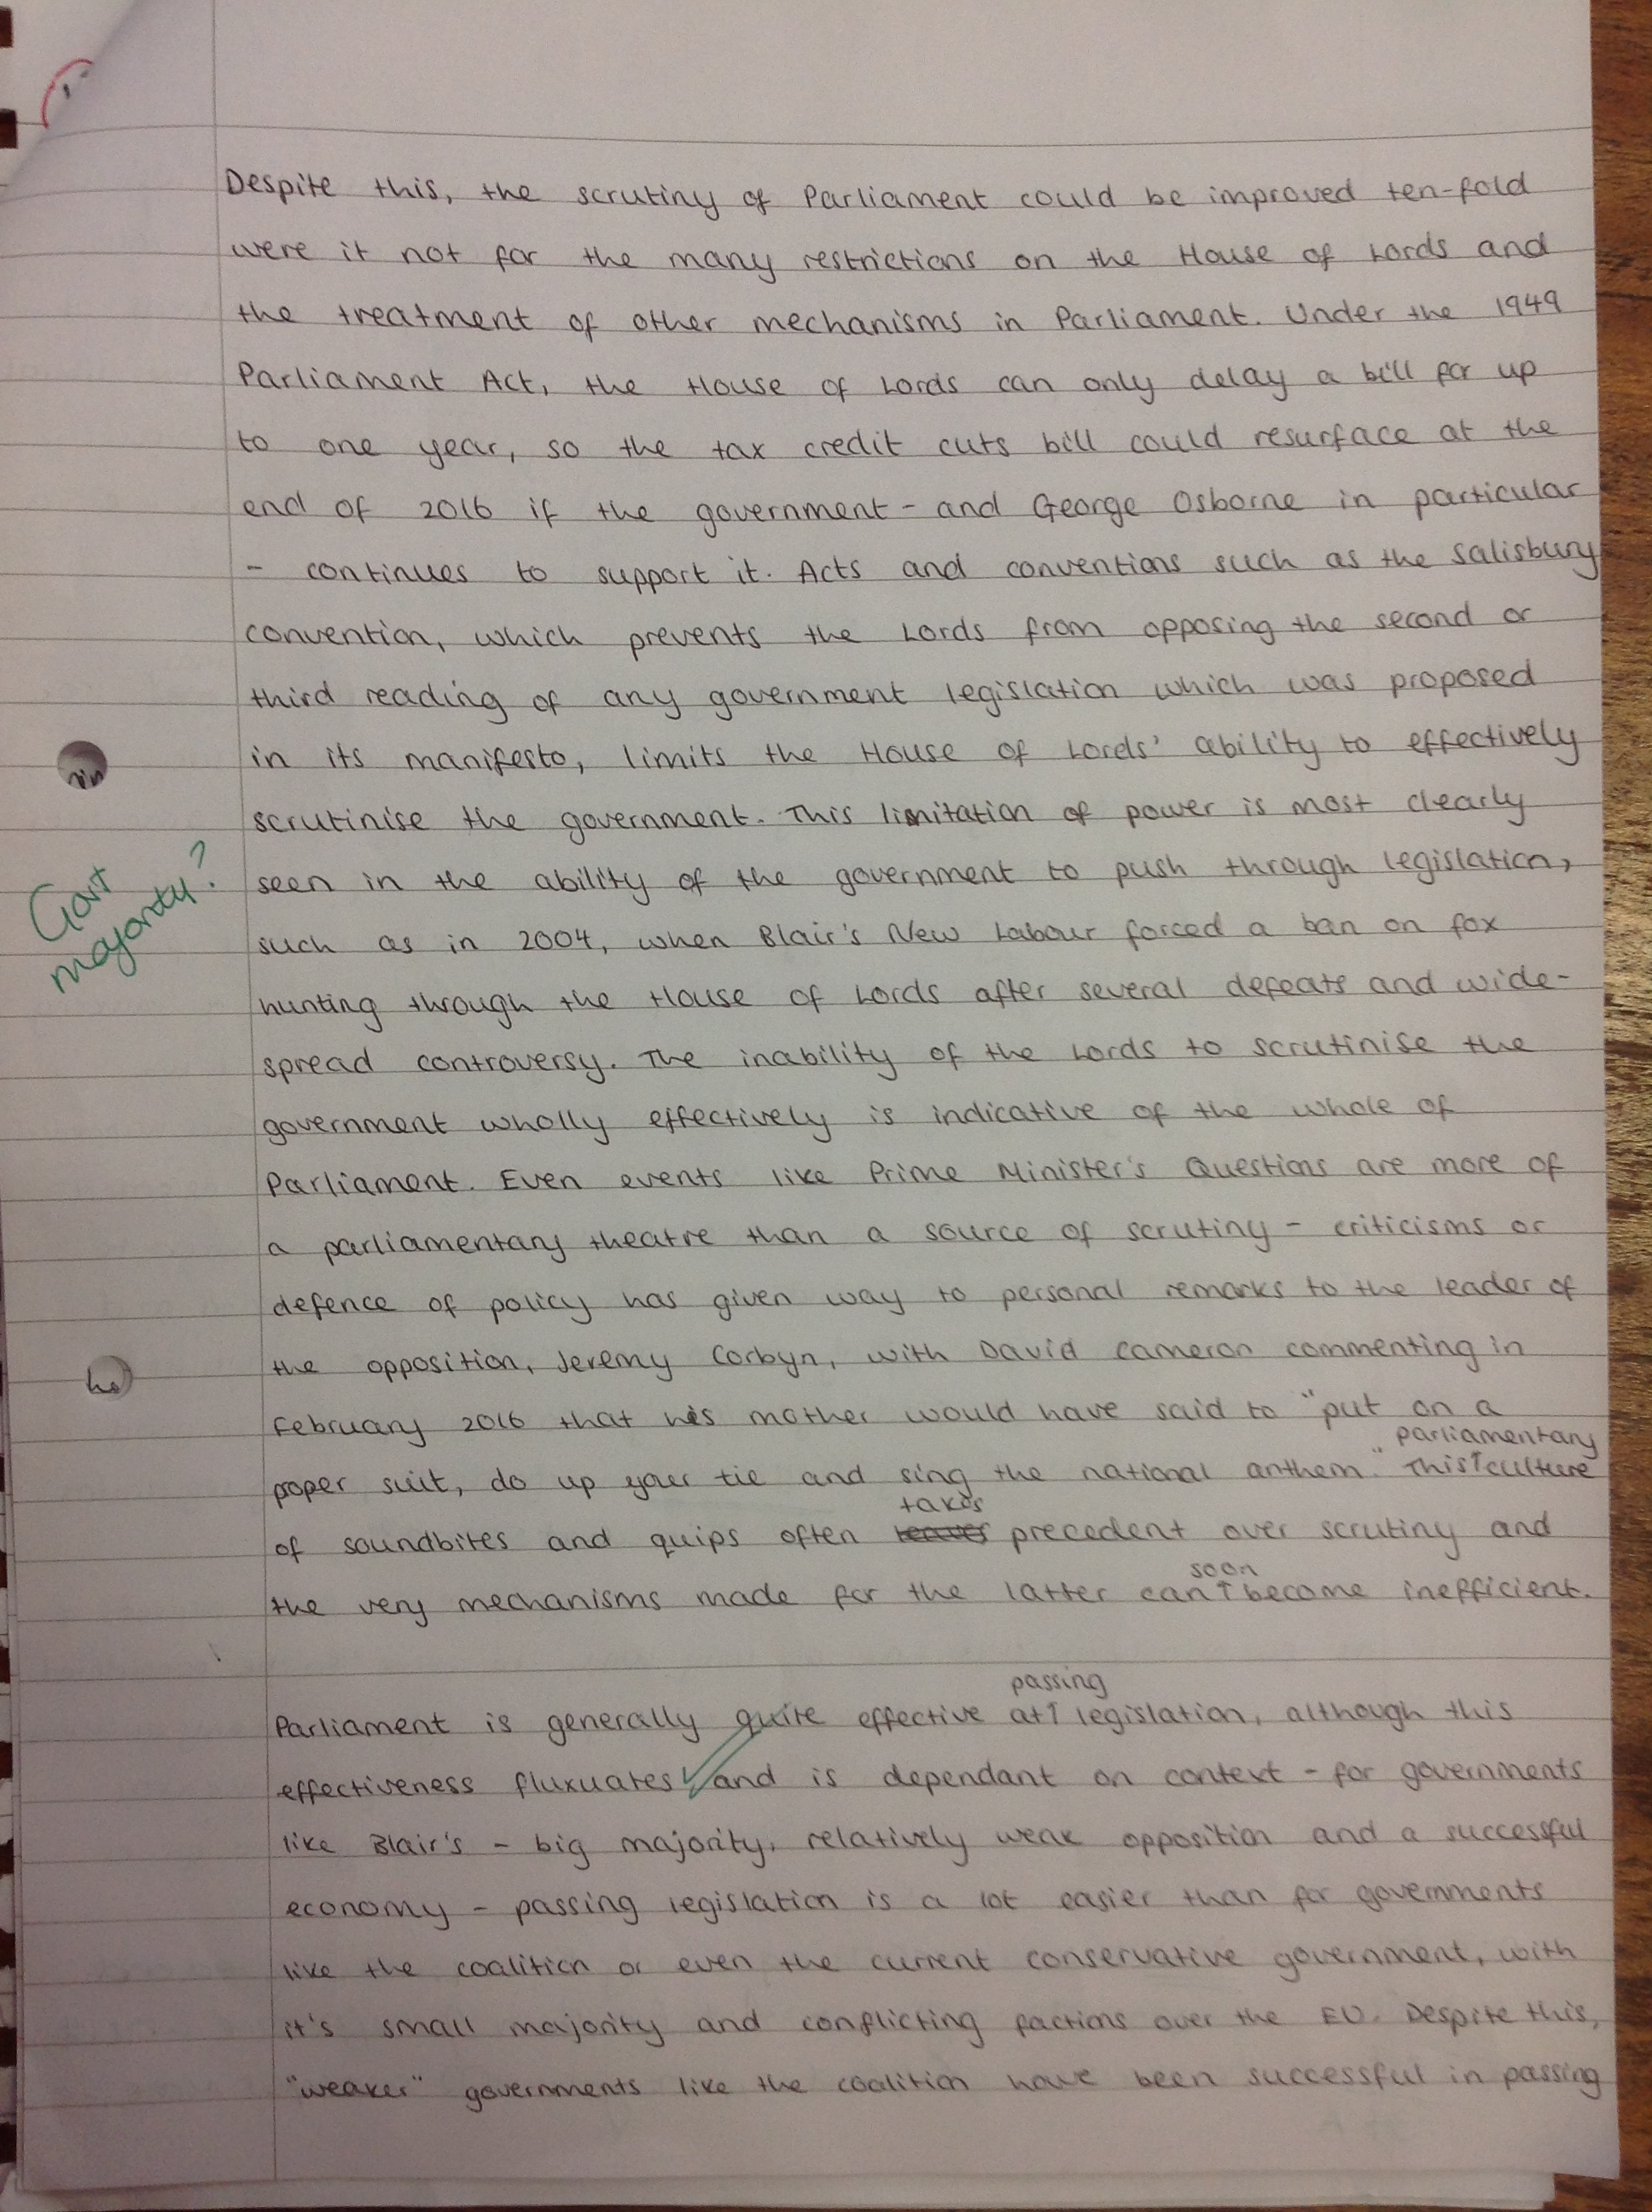 Despite this, the scrutiny of Parliament could be improved ten-fold
were it not for the many restrictions on the House of Lords and
the treatment of other mechanisms in Parliament. Under the 1949
Parliament Act, the House of Lords can only delay a bill for up
to one year, so the tax credit cuts bill could resurface at the
end of 2016 if the government - and George Osborne in particular
- continues to support it. Acts and conventions such as the Salisbury
convention, which prevents the Lords from opposing the second or
third reading of any government legislation which was proposed
in its manifesto, limits the House of Lords' ability to effectively
scrutinise the government. This limitation of power is most clearly
Govt
majority?
seen in the ability of the government to push through legislation,
such as in 2004, when Blair's New Labour forced a ban on fox
hunting through the House of Lords after several defeats and wide-
spread controversy. The inability of the Lords to scrutinise the
government wholly effectively is indicative of the whole of
Parliament. Even events like Prime Minister's Questions are more of
a parliamentary theatre than a source of scrutiny - criticisms or
defence of policy has given way to personal remarks to the leader of
the opposition, Jeremy Corbyn, with David Cameron commenting in
February 2016 that his mother would have said to "put on a
parliamentary
proper suit, do up your tie and sing the national anthem." This↑culture
takes
of soundbites and quips often precedent over scrutiny and
soon
the very mechanisms made for the latter can↑become inefficient.
passing
Parliament is generally quite effective at↑legislation, although this
effectiveness fluxuates and is dependant on context - for governments
like Blair's - big majority, relatively weak opposition and a successful
economy - passing legislation is a lot easier than for governments
like the coalition or even the current conservative government, with
it's small majority and conflicting factions over the EU. Despite this,
"weaker" governments like the coalition have been successful in passing